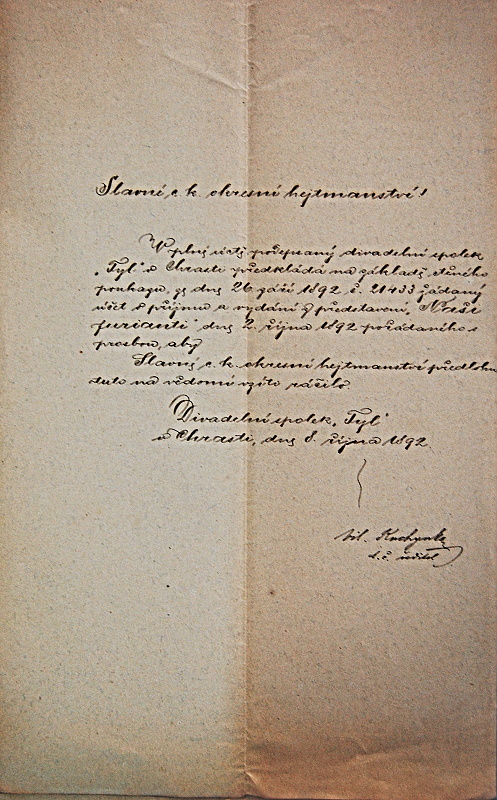 Slavné c. k. okresní hejtmanství!
V plné úctě podepsaný divadelní spolek
„Tyl“ v Chrasti předkládá na základě ctěného
poukazu ze dne 26. září 1892 č. 21433 žádaný
účet o příjmu a vydání z představení „Naši
furianti“ dne 2. října 1892 pořádaného s
prosbou, aby
Slavné c. k. okresní hejtmanství předlohu
tuto na vědomí vzíti ráčilo.
Divadelní spolek „Tyl“
v Chrasti, dne 8. října 1892.
t. č. ředitel